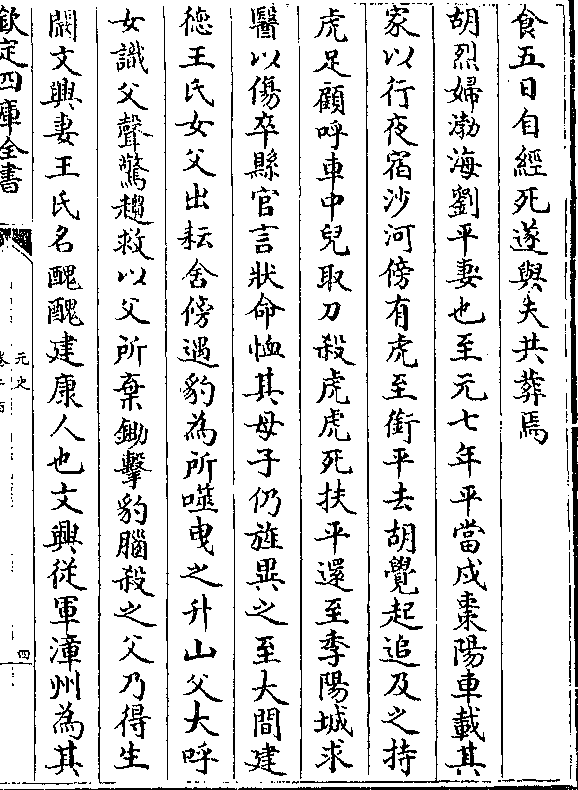 食五日自經死遂與夫共葬焉
胡烈婦渤海劉平妻也至元七年平當戍棗陽車載其
家以行夜宿沙河傍有虎至銜平去胡覺起追及之持
虎足顧呼車中兒取刀殺虎虎死扶平還至季陽城求
醫以傷卒縣官言狀命恤其母子仍旌異之至大間建
徳王氏女父出耘舍傍遇豹為所噬曳之升山父大呼
女識父聲驚趨救以父所棄鋤擊豹腦殺之父乃得生
闞文興妻王氏名醜醜建康人也文興從軍漳州為其
欽定四庫全書
元史
四